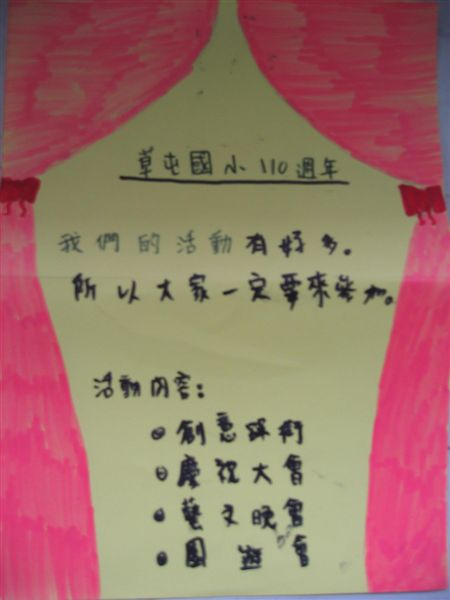 草屯國小110週年
我們的活動有好多。
所以大家一定要來參加。
活動內容：
創意踩街
慶祝大會
藝文晚會
園遊會